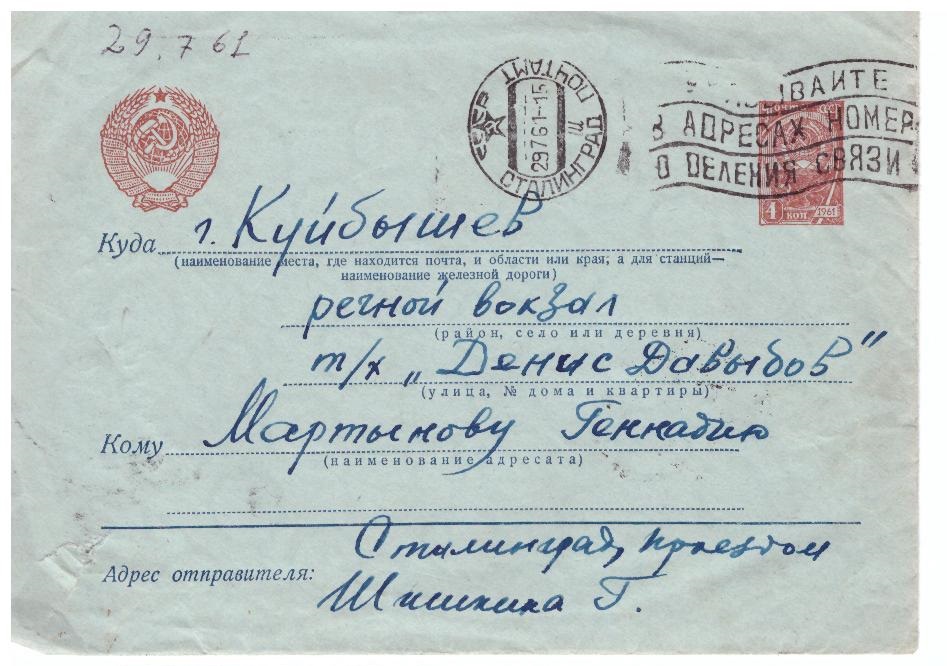 29.7 61
СТАЛИНГРАД ПОЧТАМТ
29.7.61-15
В АДРЕСАХ НОМЕР
СВЯЗИ
ПОЧТА СССР
4 КОП 1961
Куда г. Куйбышев
(наименование места, где находится почта, и области или края; а для станций—
наименование железной дороги)
речной вокзал
(район, село или деревня)
т/х „Денис Давыдов"
(улица, № дома и квартиры)
Кому Мартынову Геннадию
(наименование адресата)
Сталинград, проездом
Адрес отправителя:
Шишкина Г.